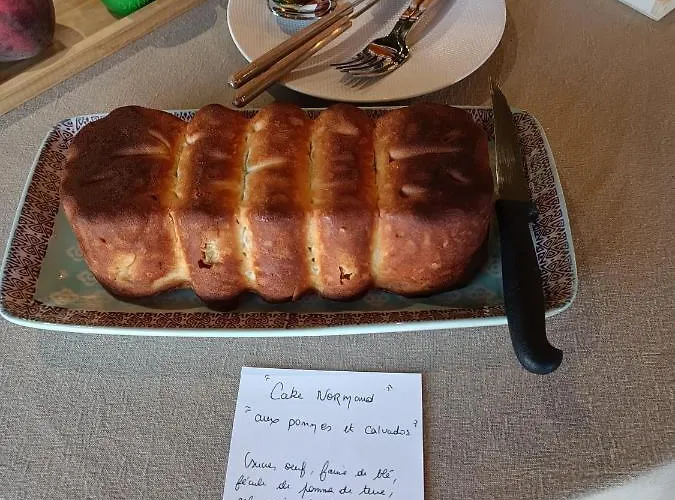 " Cake Normand "
" aux pommes et calvados "
oeuf, farine de blé,
fécule de pomme de terre,